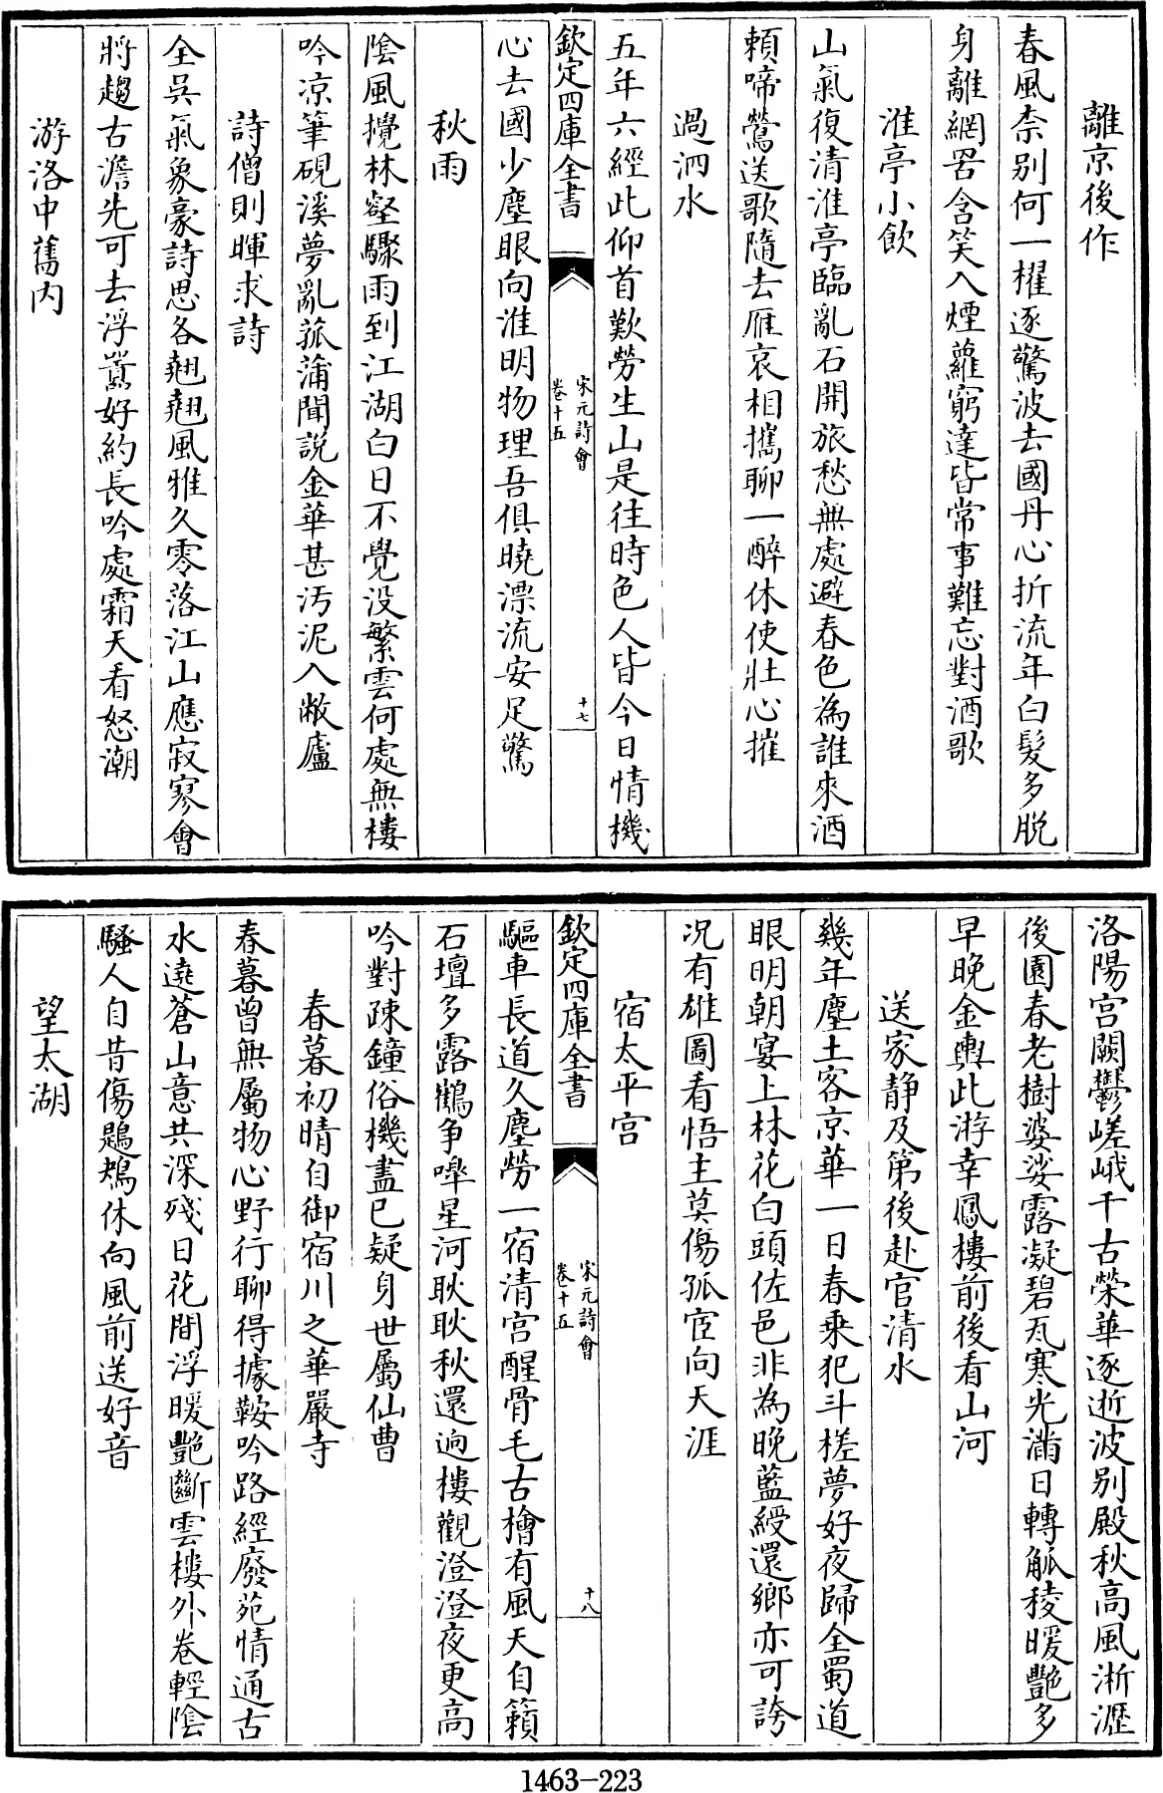 離京後作
春風柰别何一櫂逐驚波去國丹心折流年白髮多脱
身離網罟含笑入煙蘿窮達皆常事難忘對酒歌
淮亭小飲
山氣復清淮亭臨亂石開旅愁無處避春色為誰來酒
頼啼鶯送歌隨去雁哀相㩦聊一醉休使壯心摧
過泗水
五年六經此仰首歎勞生山是往時色人皆今日情機
欽定四庫全書
宋元詩會
卷十五
十七
心去國少塵眼向淮明物理吾俱曉漂流安足驚
秋雨
陰風攪林壑驟雨到江湖白日不覺没繁雲何處無樓
吟凉筆硯溪夢亂菰蒲聞説金華甚汚泥入敝廬
詩僧則暉求詩
全吳氣象豪詩思各翹翹風雅久零落江山應寂寥會
將趨古澹先可去浮囂好約長吟處霜天看怒潮
游洛中舊内
洛陽宫闕鬱嵯峨千古榮華逐逝波别殿秋高風淅瀝
後園春老樹婆娑露凝碧瓦寒光滿日轉觚稜暖艷多
早晚金輿此游幸鳳樓前後看山河
送家静及第後赴官清水
幾年塵土客京華一日春乗犯斗槎夢好夜歸全蜀道
眼明朝宴上林花白頭佐邑非為晚藍綬還鄉亦可誇
况有雄圖看悟主莫傷孤宦向天涯
宿太平宫
欽定四庫全書
宋元詩會
卷十五
十八
驅車長道久塵勞一宿清宫醒骨毛古檜有風天自籟
石壇多露鶴争嘷星河耿耿秋還逈樓觀澄澄夜更高
吟對疎鐘俗機盡已疑身世屬仙曹
春暮初晴自御宿川之華嚴寺
春暮曾無屬物心野行聊得據鞍吟路經廢苑情通古
水遶蒼山意共深殘日花間浮暖艷斷雲樓外卷輕陰
騷人自昔傷鶗鴂休向風前送好音
望太湖
1463-223